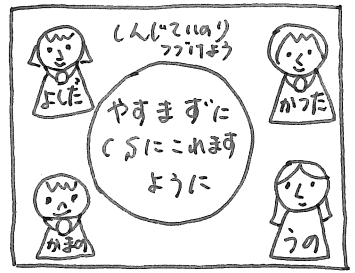 しんじていのり
つづけよう
よしだ
かつた
やすまずに
CSにこれます
ように
かまの
うの